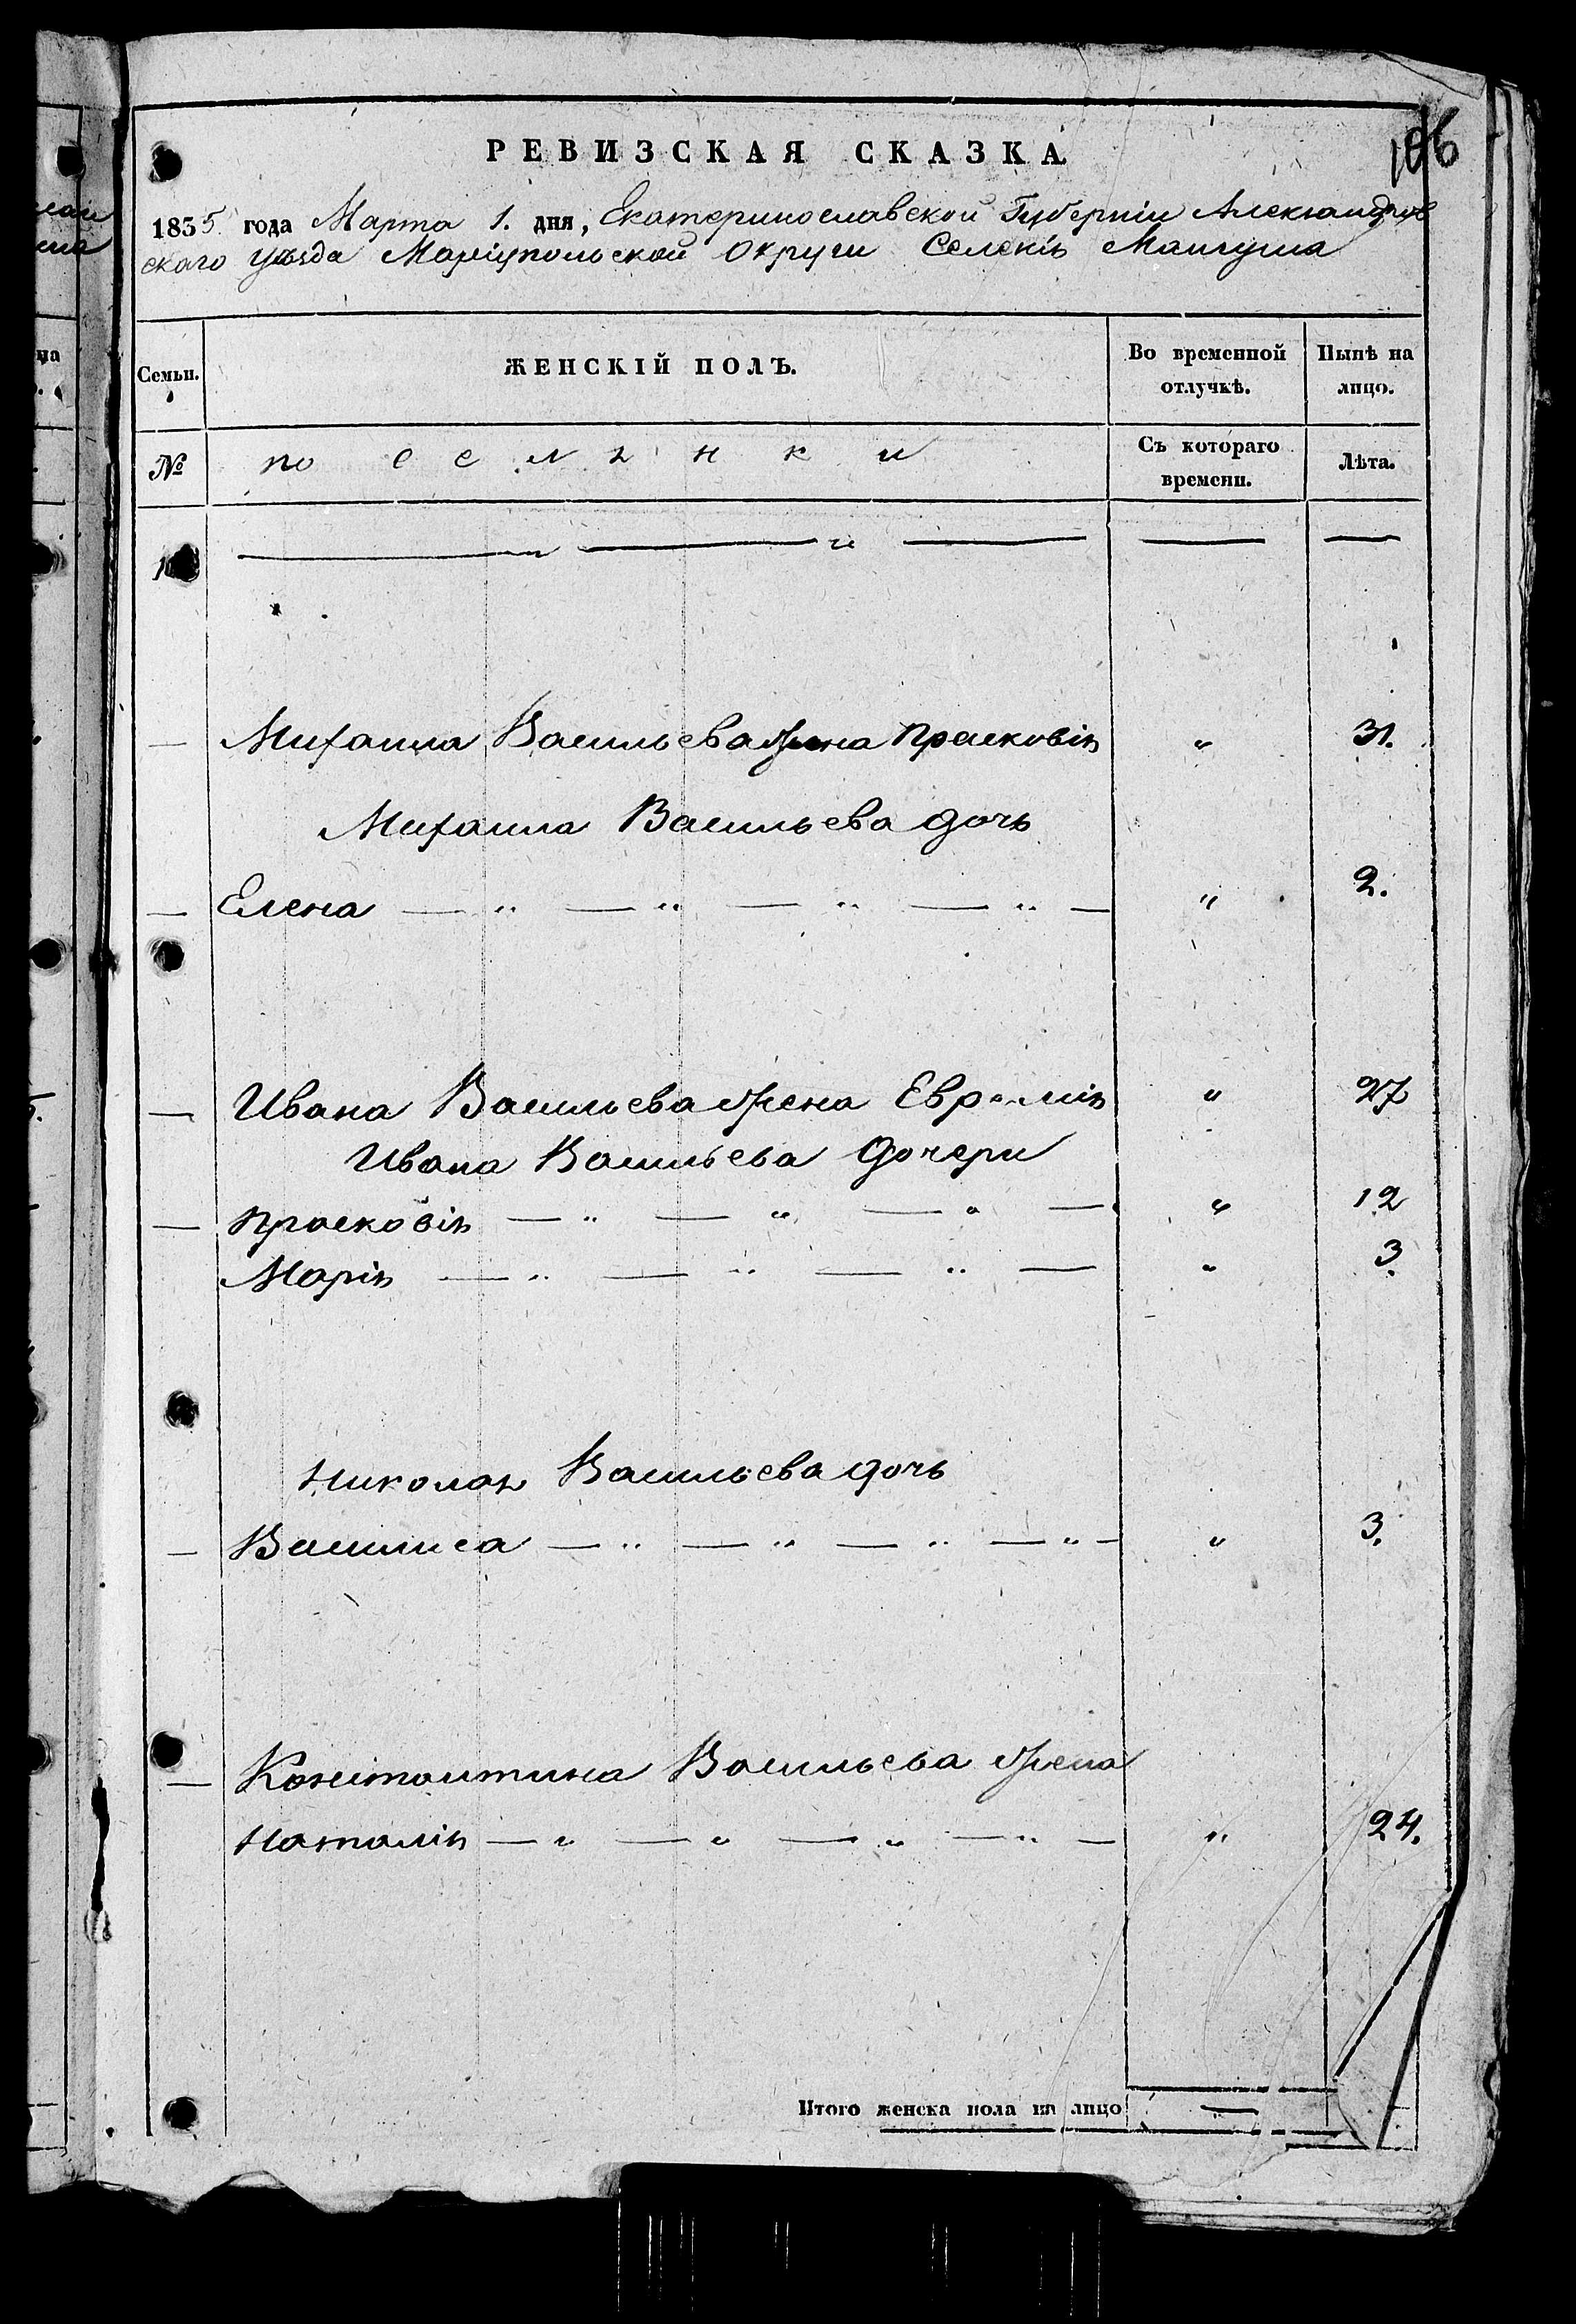 106
РЕВИЗСКАЯ СКАЗКА
1835 года Марта 1. дня, Екатеринославской Губерніи Александров
скаго уѣзда Маріупольской Округи Селенія Мангуша
Семьи.
ЖЕНСКІЙ ПОЛЪ.
Во временной отлучкѣ.
Нынѣ на лицо.
№
поселянки
Съ котораго времени.
Лѣта.
— „ — „ — — —
— Михаила Васильева жена Прасковія „ 31.
Михаила Васильева дочь
— Елена — „ — „ — „ — „ — „ 2.
— Ивана Васильева жена „ 27
Ивана Васильева дочери
— Прасковія — „ — „ — „ — „ 12
Марія — „ — „ — „ — „ 3.
Николая Васильева дочь
— Василиса — „ — „ — „ — „ — „ 3.
— Константина Васильева жена
Наталія — „ — „ — „ — „ — „ 24.
Итого женска пола на лицо —